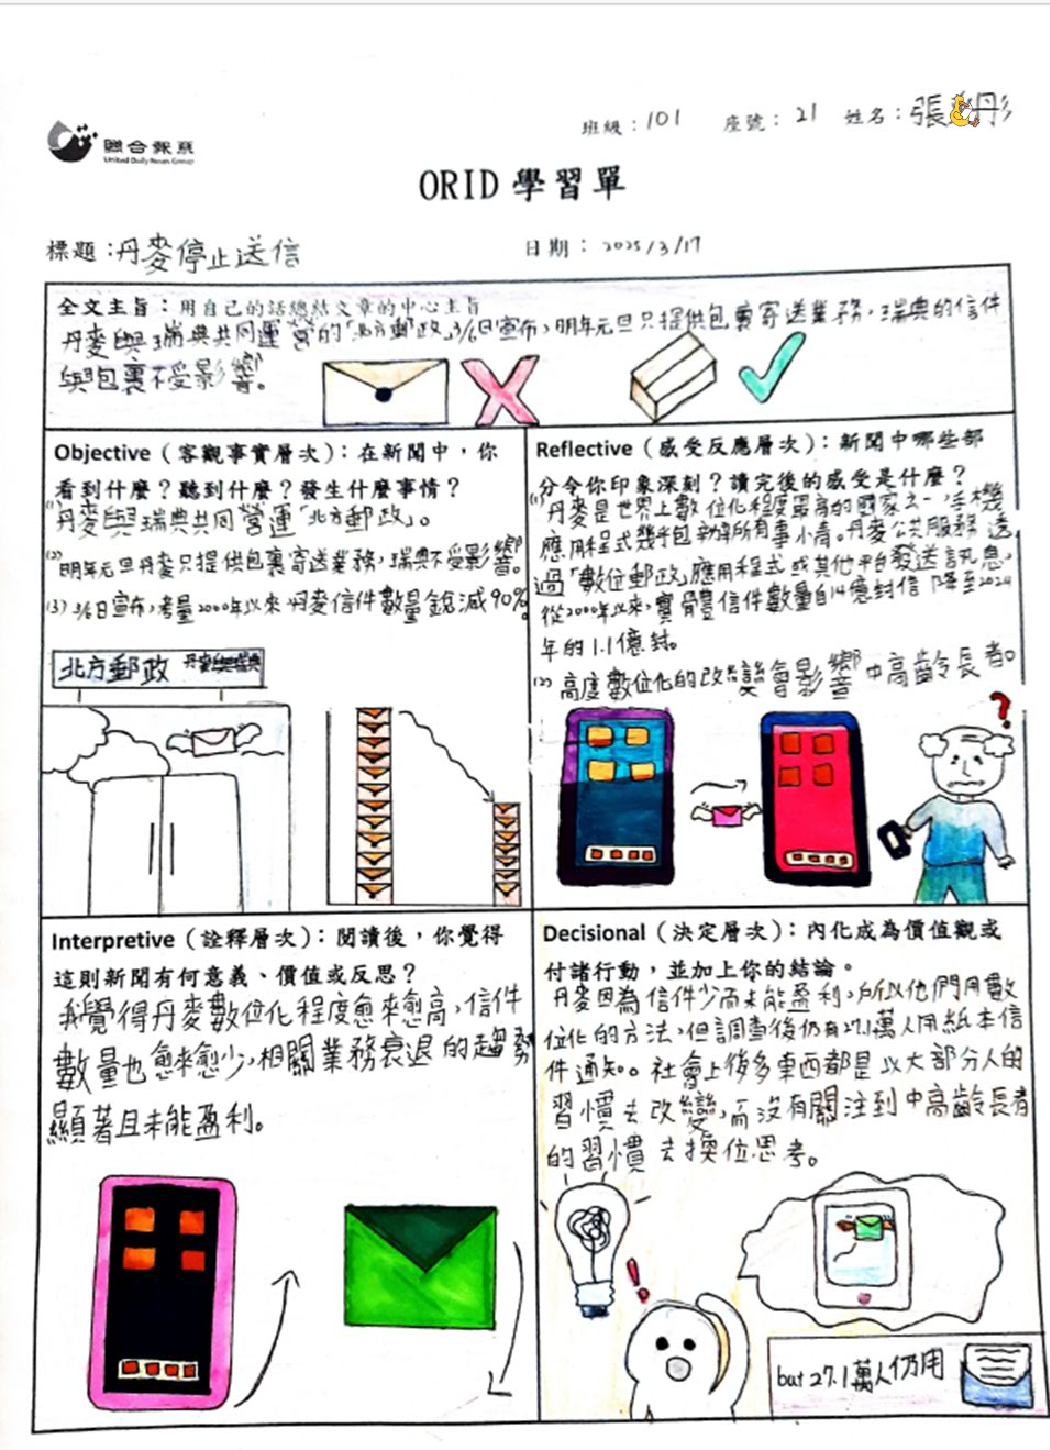 聯合報系
United Daily News Group
班級：101 座號：21 姓名：張 彤
ORID 學習單
標題：丹麥停止送信 日期：2025/3/17
全文主旨：用自己的話總結文章的中心主旨
丹麥與瑞典共同運營的「北方郵政」3/6日宣布，明年元旦只提供包裹寄送業務，瑞典的信件
與包裹不受影響。
Objective（客觀事實層次）：在新聞中，你
看到什麼？聽到什麼？發生什麼事情？
(1)丹麥與瑞典共同營運「北方郵政」。
(2)明年元旦丹麥只提供包裹寄送業務，瑞典不受影響。
(3) 3/6日宣布，考量2000年以來丹麥信件數量銳減90%
北方郵政 丹麥與瑞典
Reflective（感受反應層次）：新聞中哪些部
分令你印象深刻？讀完後的感受是什麼？
(1)丹麥是世界上數位化程度最高的國家之一，手機
應用程式幾乎包辦所有事小青。丹麥公共服務透
過「數位郵政」應用程式或其他平台發送訊息，
從2000年以來，實體信件數量自14億封信下降至2024
年的1.1億封。
(2)高度數位化的改變會影響中高齡長者。
Interpretive（詮釋層次）：閱讀後，你覺得
這則新聞有何意義、價值或反思？
我覺得丹麥數位化程度愈來愈高，信件
數量也愈來愈少，相關業務衰退的趨勢
顯著且未能盈利。
Decisional（決定層次）：內化成為價值觀或
付諸行動，並加上你的結論。
丹麥因為信件少而未能盈利，所以他們用數
位化的方法，但調查後仍有27.1萬人用紙本信
件通知。社會上後多東西都是以大部分人的
習慣去改變，而沒有關注到中高齡長者
的習慣去換位思考。
but 27.1萬人仍用